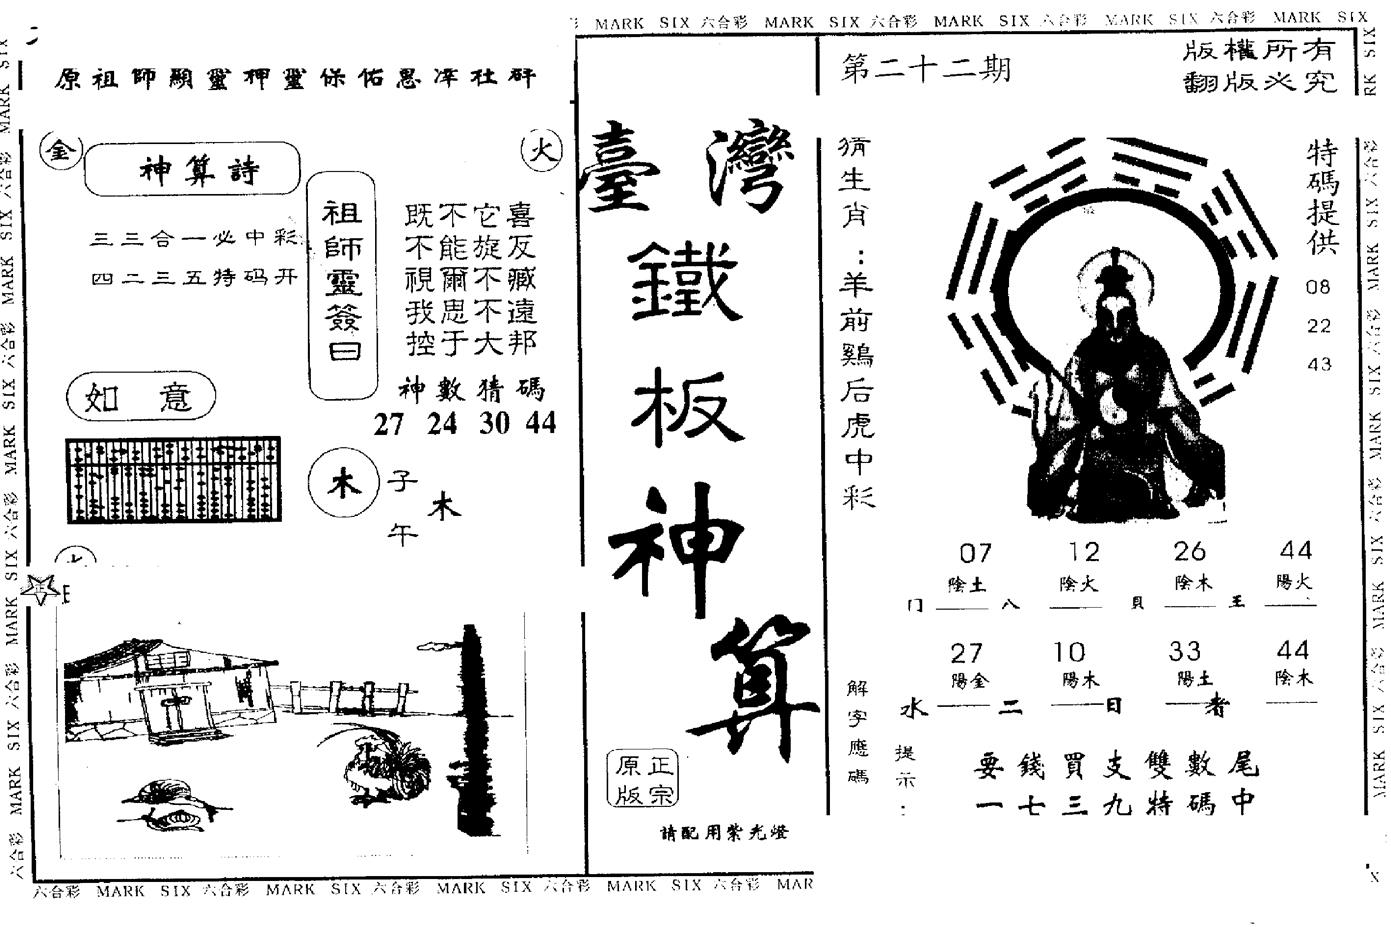 MARK SIX 六合彩 MARK SIX 六合彩 MARK SIX 六合彩 MARK SIX 六合彩 MARK SIX
原祖師顯靈押靈保佑恩澤社群
金
神算詩
火
三三合一必中彩
四二三五特码开
祖師靈簽曰
既不它喜
不能旋反
視爾不臧
我思不遠
控于大邦
神數猜碼
27 24 30 44
如意
木
子
午
木
臺灣
鐵
板
神
算
正宗
原版
請配用紫光燈
第二十二期
版權所有
翻版必究
猜生肖：羊前鷄后虎中彩
特碼提供
08
22
43
07 12 26 44
陰土 陰火 陰木 陽火
門 八 貝 王
27 10 33 44
陽金 陽木 陽土 陰木
水 二 日 者
解字應碼
提示：
要錢買支雙數尾
一七三九特碼中
六合彩 MARK SIX 六合彩 MARK SIX 六合彩 MARK SIX 六合彩 MARK SIX 六合彩 MAR